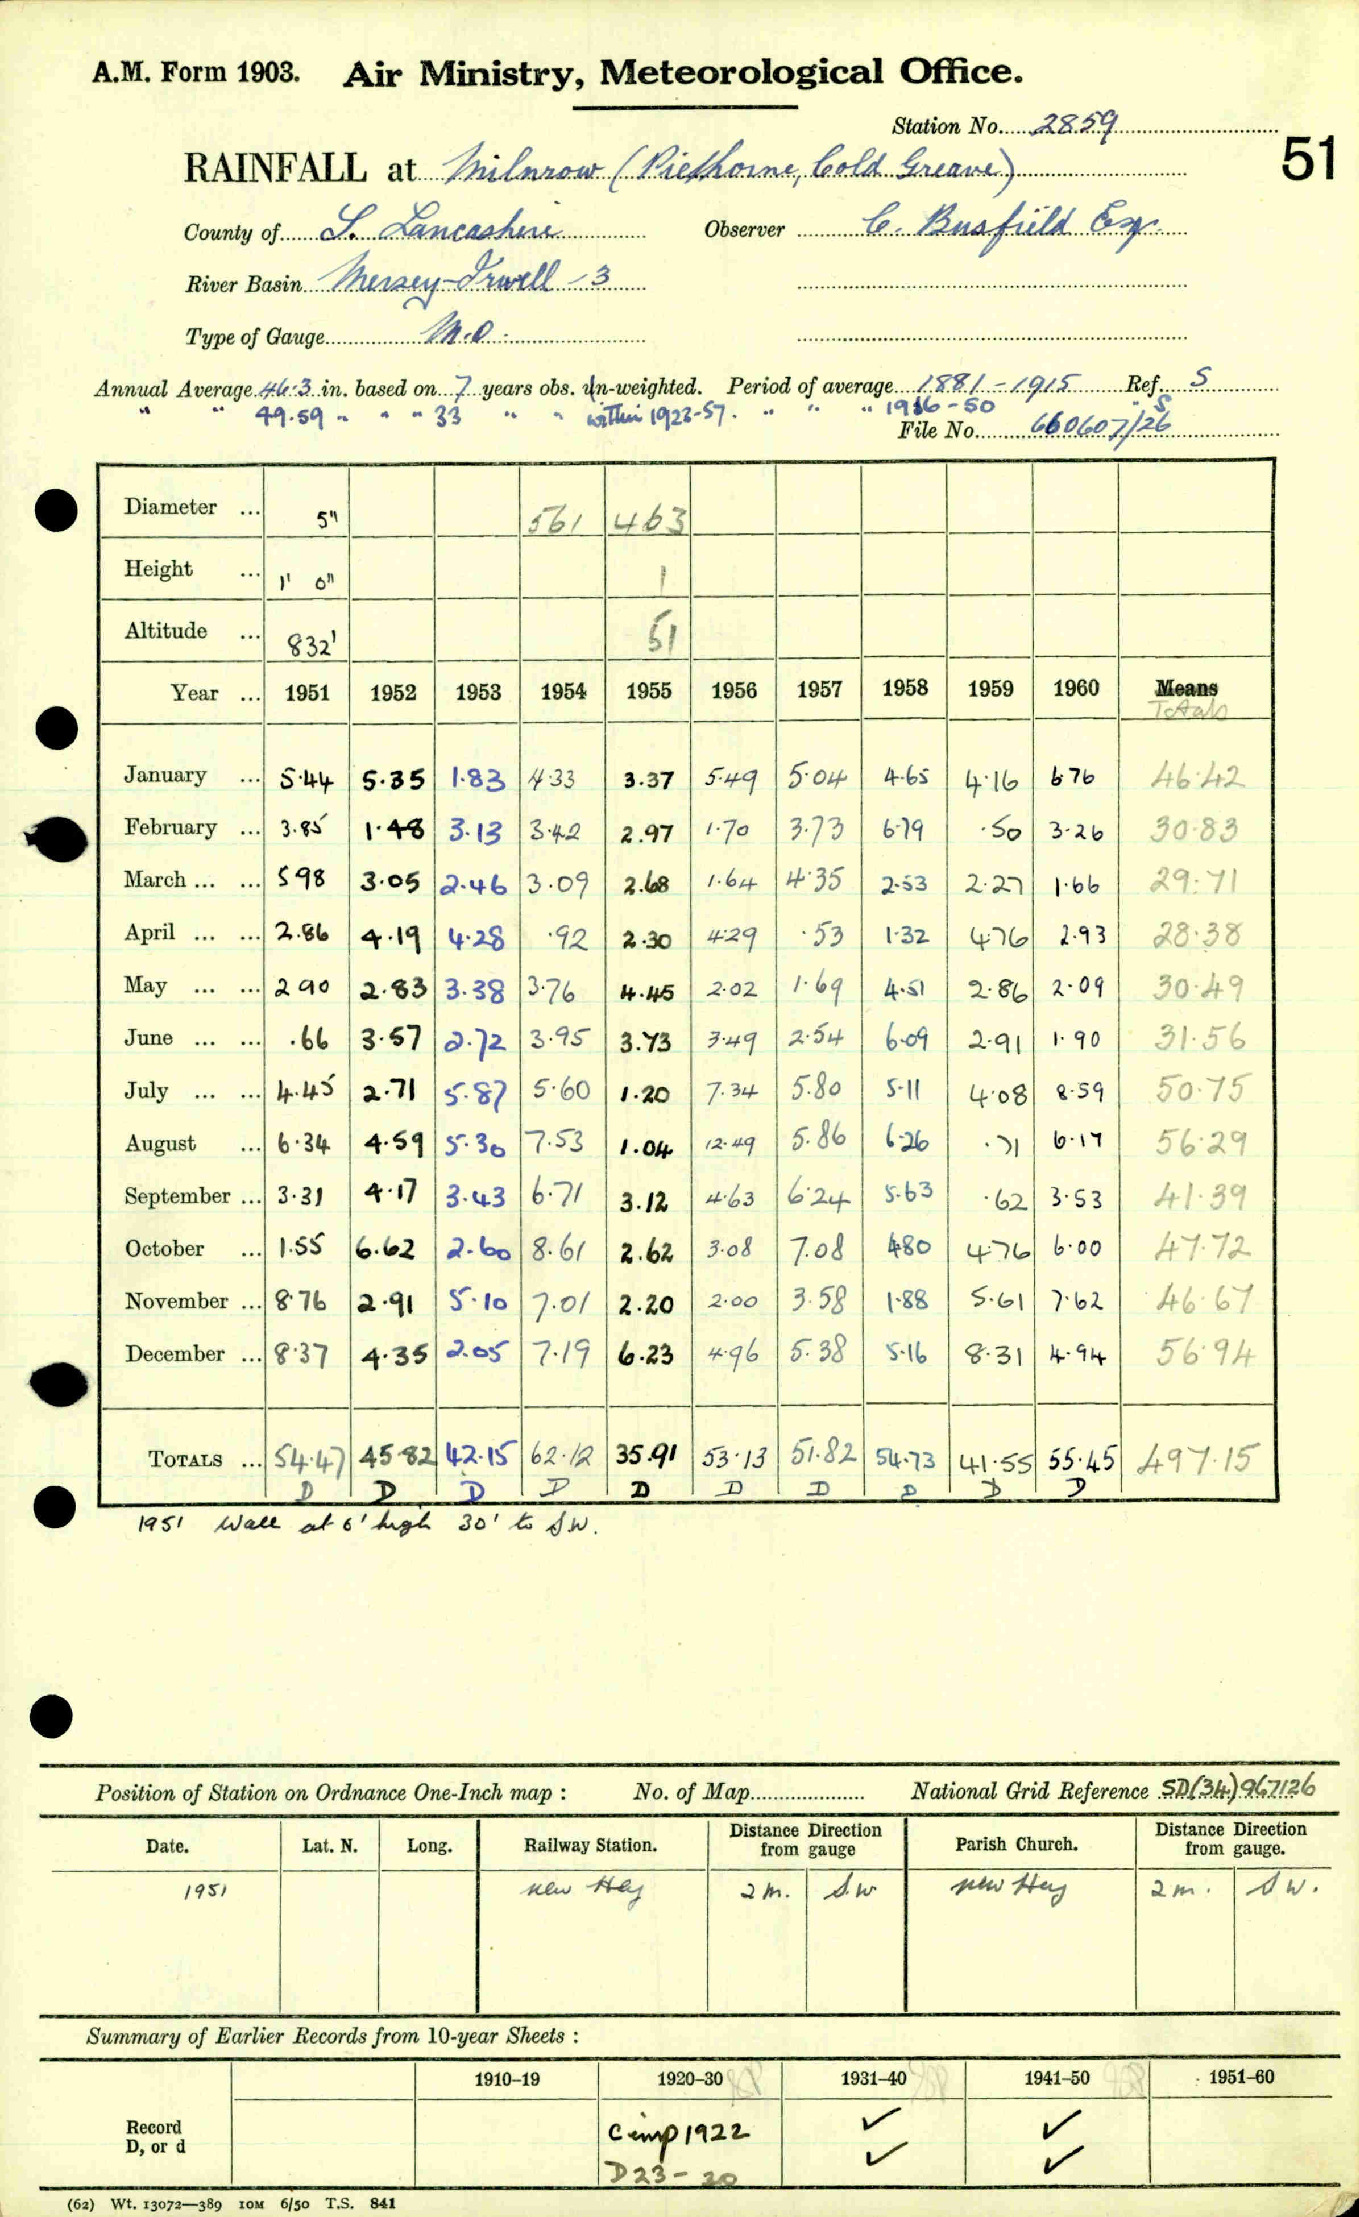 A.M. Form 1903. Air Ministry, Meteorological Office.
Station No. 2859
51
RAINFALL at Milnrow (Piethorne, Cold Greave)
County of S. Lancashire Observer C. Busfield Esq.
River Basin Mersey-Irwell - 3
Type of Gauge M.O.
Annual Average 46.3 in. based on 7 years obs. Un-weighted. Period of average 1881-1915 Ref. S
" " 49.59 " " " 33 " " within 1923-57. " " " 1916-50 " S
File No. 660607/26
Diameter ... 5" 561 463
Height ... 1' 0" 1
Altitude ... 832' 51
Year ... 1951 1952 1953 1954 1955 1956 1957 1958 1959 1960 Means
Totals
January ... 5.44 5.35 1.83 4.33 3.37 5.49 5.04 4.65 4.16 6.76 46.42
February ... 3.85 1.48 3.13 3.42 2.97 1.70 3.73 6.79 .50 3.26 30.83
March ... ... 5.98 3.05 2.46 3.09 2.68 1.64 4.35 2.53 2.27 1.66 29.71
April ... ... 2.86 4.19 4.28 .92 2.30 4.29 .53 1.32 4.76 2.93 28.38
May ... ... 2.90 2.83 3.38 3.76 4.45 2.02 1.69 4.51 2.86 2.09 30.49
June ... ... .66 3.57 2.72 3.95 3.73 3.49 2.54 6.09 2.91 1.90 31.56
July ... ... 4.45 2.71 5.87 5.60 1.20 7.34 5.80 5.11 4.08 8.59 50.75
August ... 6.34 4.59 5.30 7.53 1.04 12.49 5.86 6.26 .71 6.17 56.29
September ... 3.31 4.17 3.43 6.71 3.12 4.63 6.24 5.63 .62 3.53 41.39
October ... 1.55 6.62 2.60 8.61 2.62 3.08 7.08 4.80 4.76 6.00 47.72
November ... 8.76 2.91 5.10 7.01 2.20 2.00 3.58 1.88 5.61 7.62 46.67
December ... 8.37 4.35 2.05 7.19 6.23 4.96 5.38 5.16 8.31 4.94 56.94
TOTALS ... 54.47 45.82 42.15 62.12 35.91 53.13 51.82 54.73 41.55 55.45 497.15
D D D D D D D D D D
1951 Wall at 6' high 30' to SW.
Position of Station on Ordnance One-Inch map : No. of Map National Grid Reference SD(34)967126
Date. Lat. N. Long. Railway Station. Distance Direction from gauge Parish Church. Distance Direction from gauge.
1951 New Hey 2 m. SW New Hey 2 m. SW.
Summary of Earlier Records from 10-year Sheets :
1910–19 1920–30 1931–40 1941–50 1951–60
Record D, or d C imp 1922 ✓ ✓
D 23 - 30 ✓ ✓
(62) Wt. 13072—389 10M 6/50 T.S. 841